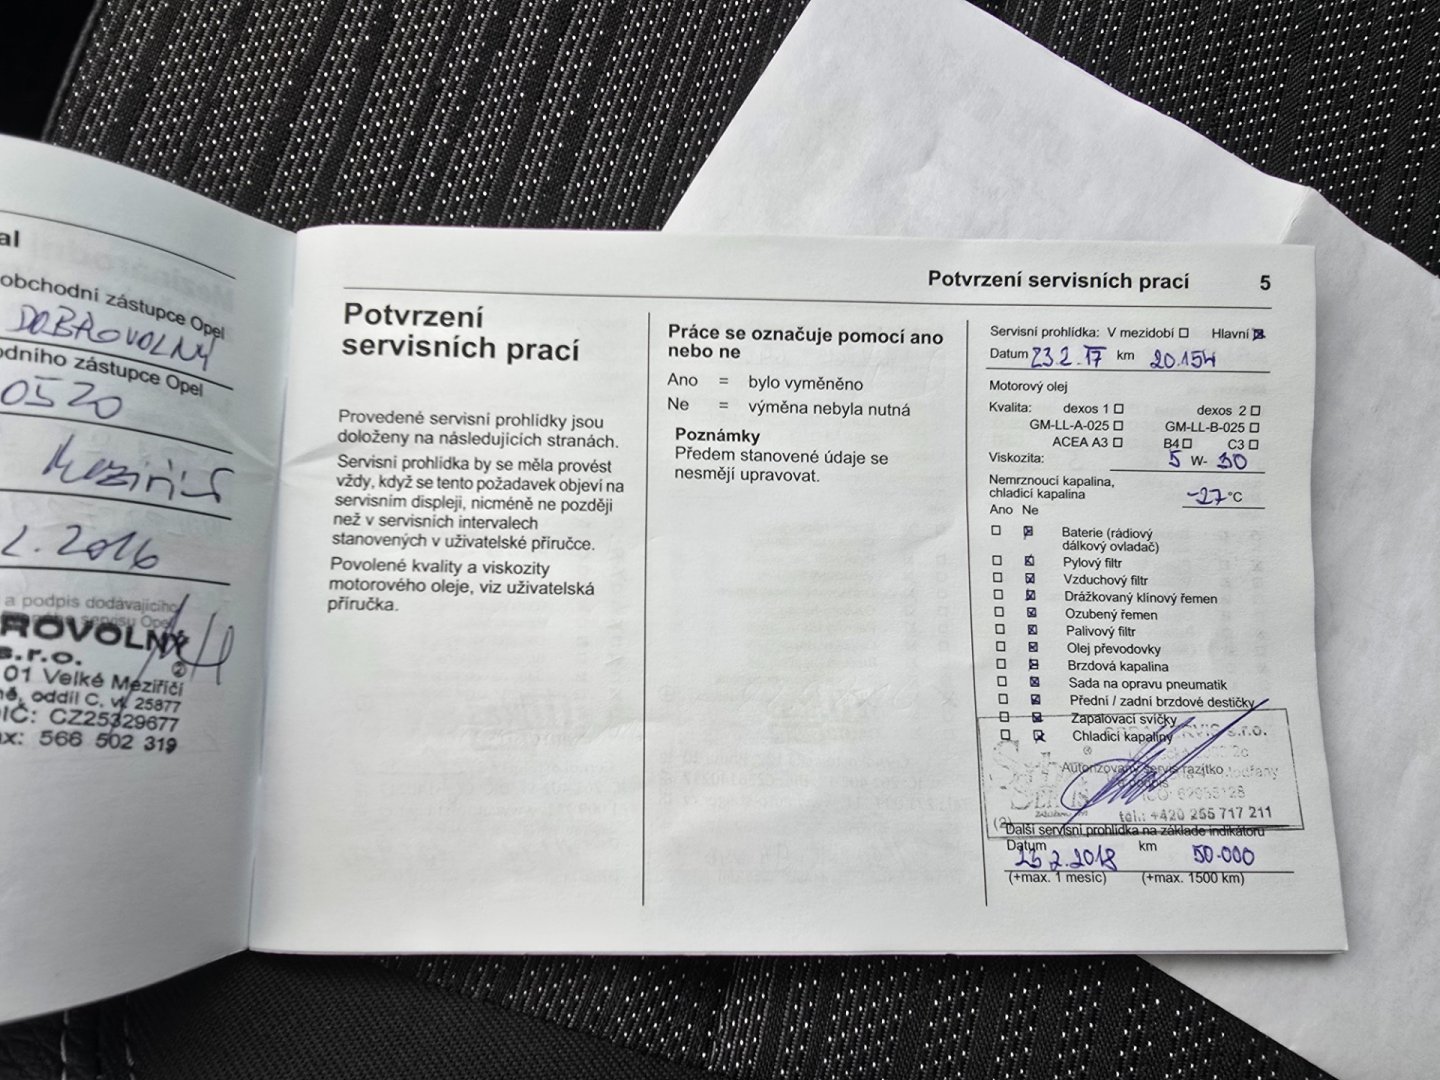 al
obchodní zástupce Opel
DOBROVOLNÝ
odního zástupce Opel
0520
Meziříčí
2.2016
a podpis dodávajícího
ROVOLNÝ
s.r.o.
01 Velké Meziříčí
oddíl C, vl. 25877
DIČ: CZ25329677
ax: 566 502 319
Potvrzení servisních prací 5
Potvrzení
servisních prací
Provedené servisní prohlídky jsou
doloženy na následujících stranách.
Servisní prohlídka by se měla provést
vždy, když se tento požadavek objeví na
servisním displeji, nicméně ne později
než v servisních intervalech
stanovených v uživatelské příručce.
Povolené kvality a viskozity
motorového oleje, viz uživatelská
příručka.
Práce se označuje pomocí ano
nebo ne
Ano = bylo vyměněno
Ne = výměna nebyla nutná
Poznámky
Předem stanovené údaje se
nesmějí upravovat.
Servisní prohlídka: V mezidobí Hlavní
Datum 23.2.17 km 20.154
Motorový olej
Kvalita: dexos 1 dexos 2
GM-LL-A-025 GM-LL-B-025
ACEA A3 B4 C3
Viskozita: 5 W- 30
Nemrznoucí kapalina,
chladicí kapalina -27 °C
Ano Ne
Baterie (rádiový
dálkový ovladač)
Pylový filtr
Vzduchový filtr
Drážkovaný klínový řemen
Ozubený řemen
Palivový filtr
Olej převodovky
Brzdová kapalina
Sada na opravu pneumatik
Přední / zadní brzdové destičky
Zapalovací svíčky
Chladicí kapaliny
s.r.o.
Autorizovaný servis razítko
a podpis
tel.: +420 255 717 211
Další servisní prohlídka na základě indikátoru
Datum km
23.2.2018 50.000
(+max. 1 měsíc) (+max. 1500 km)